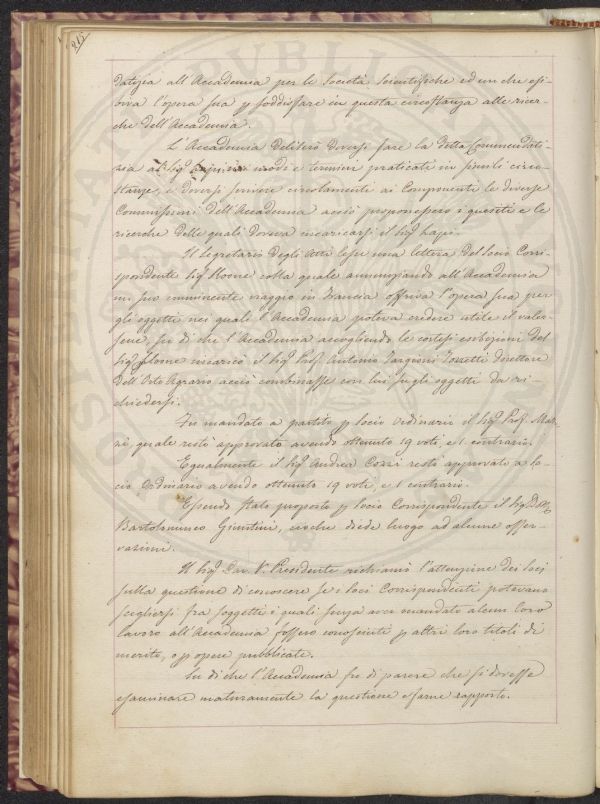 datizia all'Accademia per le Società Scientifiche ed anche esi-
biva l'opera sua p soddisfare in questa circostanza alle ricer-
che dell'Accademia.
L'Accademia deliberò doversi fare la detta Commendati-
zia al Sig. modi e termini praticati in simili circo-
stanze, e doversi scrivere circolarmente ai Componenti le diverse
Commissioni dell'Accademia acciò proponessero i quesiti e le
ricerche delle quali doveva incaricarsi il Sig. Capei.
Il Segretario degli Atti lesse una lettera del Socio Corri-
spondente Sig. colla quale annunziando all'Accademia
un suo imminente viaggio in Francia offriva l'opera sua per
gli oggetti nei quali l'Accademia poteva credere utile il valer-
sene, su di che l'Accademia accogliendo le cortesi esibizioni del
Sig. incaricò il Sig. Prof. Antonio Targioni Tozzetti Direttore
dell'Orto Agrario acciò combinasse con lui sugli oggetti da ri-
chiedersi.
Fu mandato a partito p Socio Ordinario il Sig. Prof.
quale restò approvato avendo ottenuto 19 voti, e 1 contrario.
Egualmente il Sig. Andrea Cozzi restò approvato a So-
cio Ordinario avendo ottenuto 19 voti, e 1 contrario.
Essendo stato proposto p Socio Corrispondente il Sig. Dott.
Bartolommeo Giuntini, ciò che diede luogo ad alcune osser-
vazioni.
Il Sig. Cav. V. Presidente richiamò l'attenzione dei Soci
sulla questione di conoscere se i Soci Corrispondenti potevano
scegliersi fra soggetti i quali senza aver mandato alcun loro
lavoro all'Accademia fossero conosciuti p altri loro titoli di
merito, o p opere pubblicate.
Su di che l'Accademia fu di parere che si dovesse
esaminare maturamente la questione e farne rapporto.